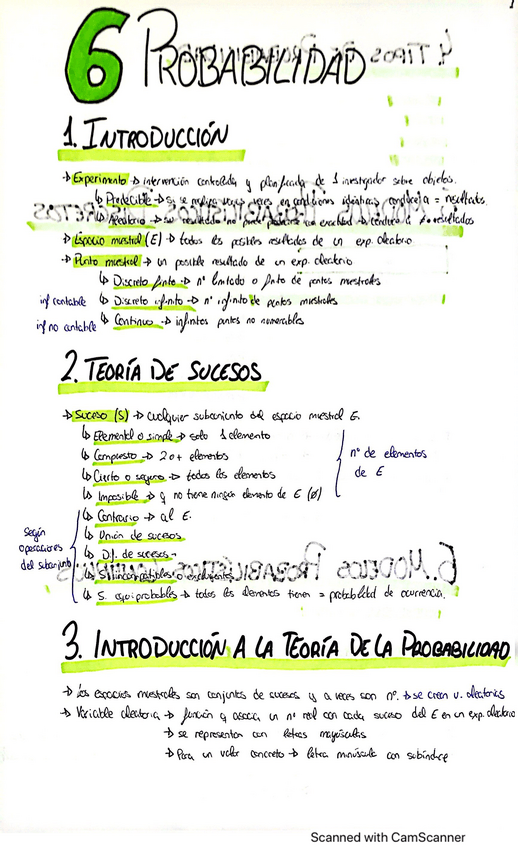 1
6 PROBABILIDAD
1. INTRODUCCIÓN
→ Experimento → intervención controlada y planificada de 1 investigador sobre objetos.
↳ Predecible → si se realiza varias veces en condiciones idénticas conducen a = resultados.
↳ Aleatorio → su resultado no puede predecirse con exactitud → conduce a ≠ resultados
→ Espacio muestral (E) → todos los posibles resultados de un exp. aleatorio
→ Punto muestral → un posible resultado de un exp. aleatorio
↳ Discreto finito → nº limitado o finito de puntos muestrales
inf contable ↳ Discreto infinito → nº infinito de puntos muestrales
inf no contable ↳ Continuo → infinitos puntos no numerables
2. TEORÍA DE SUCESOS
→ Suceso (S) → cualquier subconjunto del espacio muestral E.
↳ Elemental o simple → solo 1 elemento
↳ Compuesto → 2 o + elementos
↳ Cierto o seguro → todos los elementos
↳ Imposible → q no tiene ningún elemento de E (Ø)
nº de elementos
de E
↳ Contrario → al E.
↳ Unión de sucesos
↳ Dif. de sucesos →
↳ S. incompatibles o excluyentes
↳ S. equiprobables → todos los elementos tienen = probabilidad de ocurrencia.
Según
operaciones
del subconjunto
3. INTRODUCCIÓN A LA TEORÍA DE LA PROBABILIDAD
→ Los espacios muestrales son conjuntos de sucesos y a veces son nº. → se crean v. aleatorias
→ Variable aleatoria → función q asocia un nº real con cada suceso del E en un exp. aleatorio
→ se representan con letras mayúsculas
→ Para un valor concreto → letra minúscula con subíndice
Scanned with CamScanner